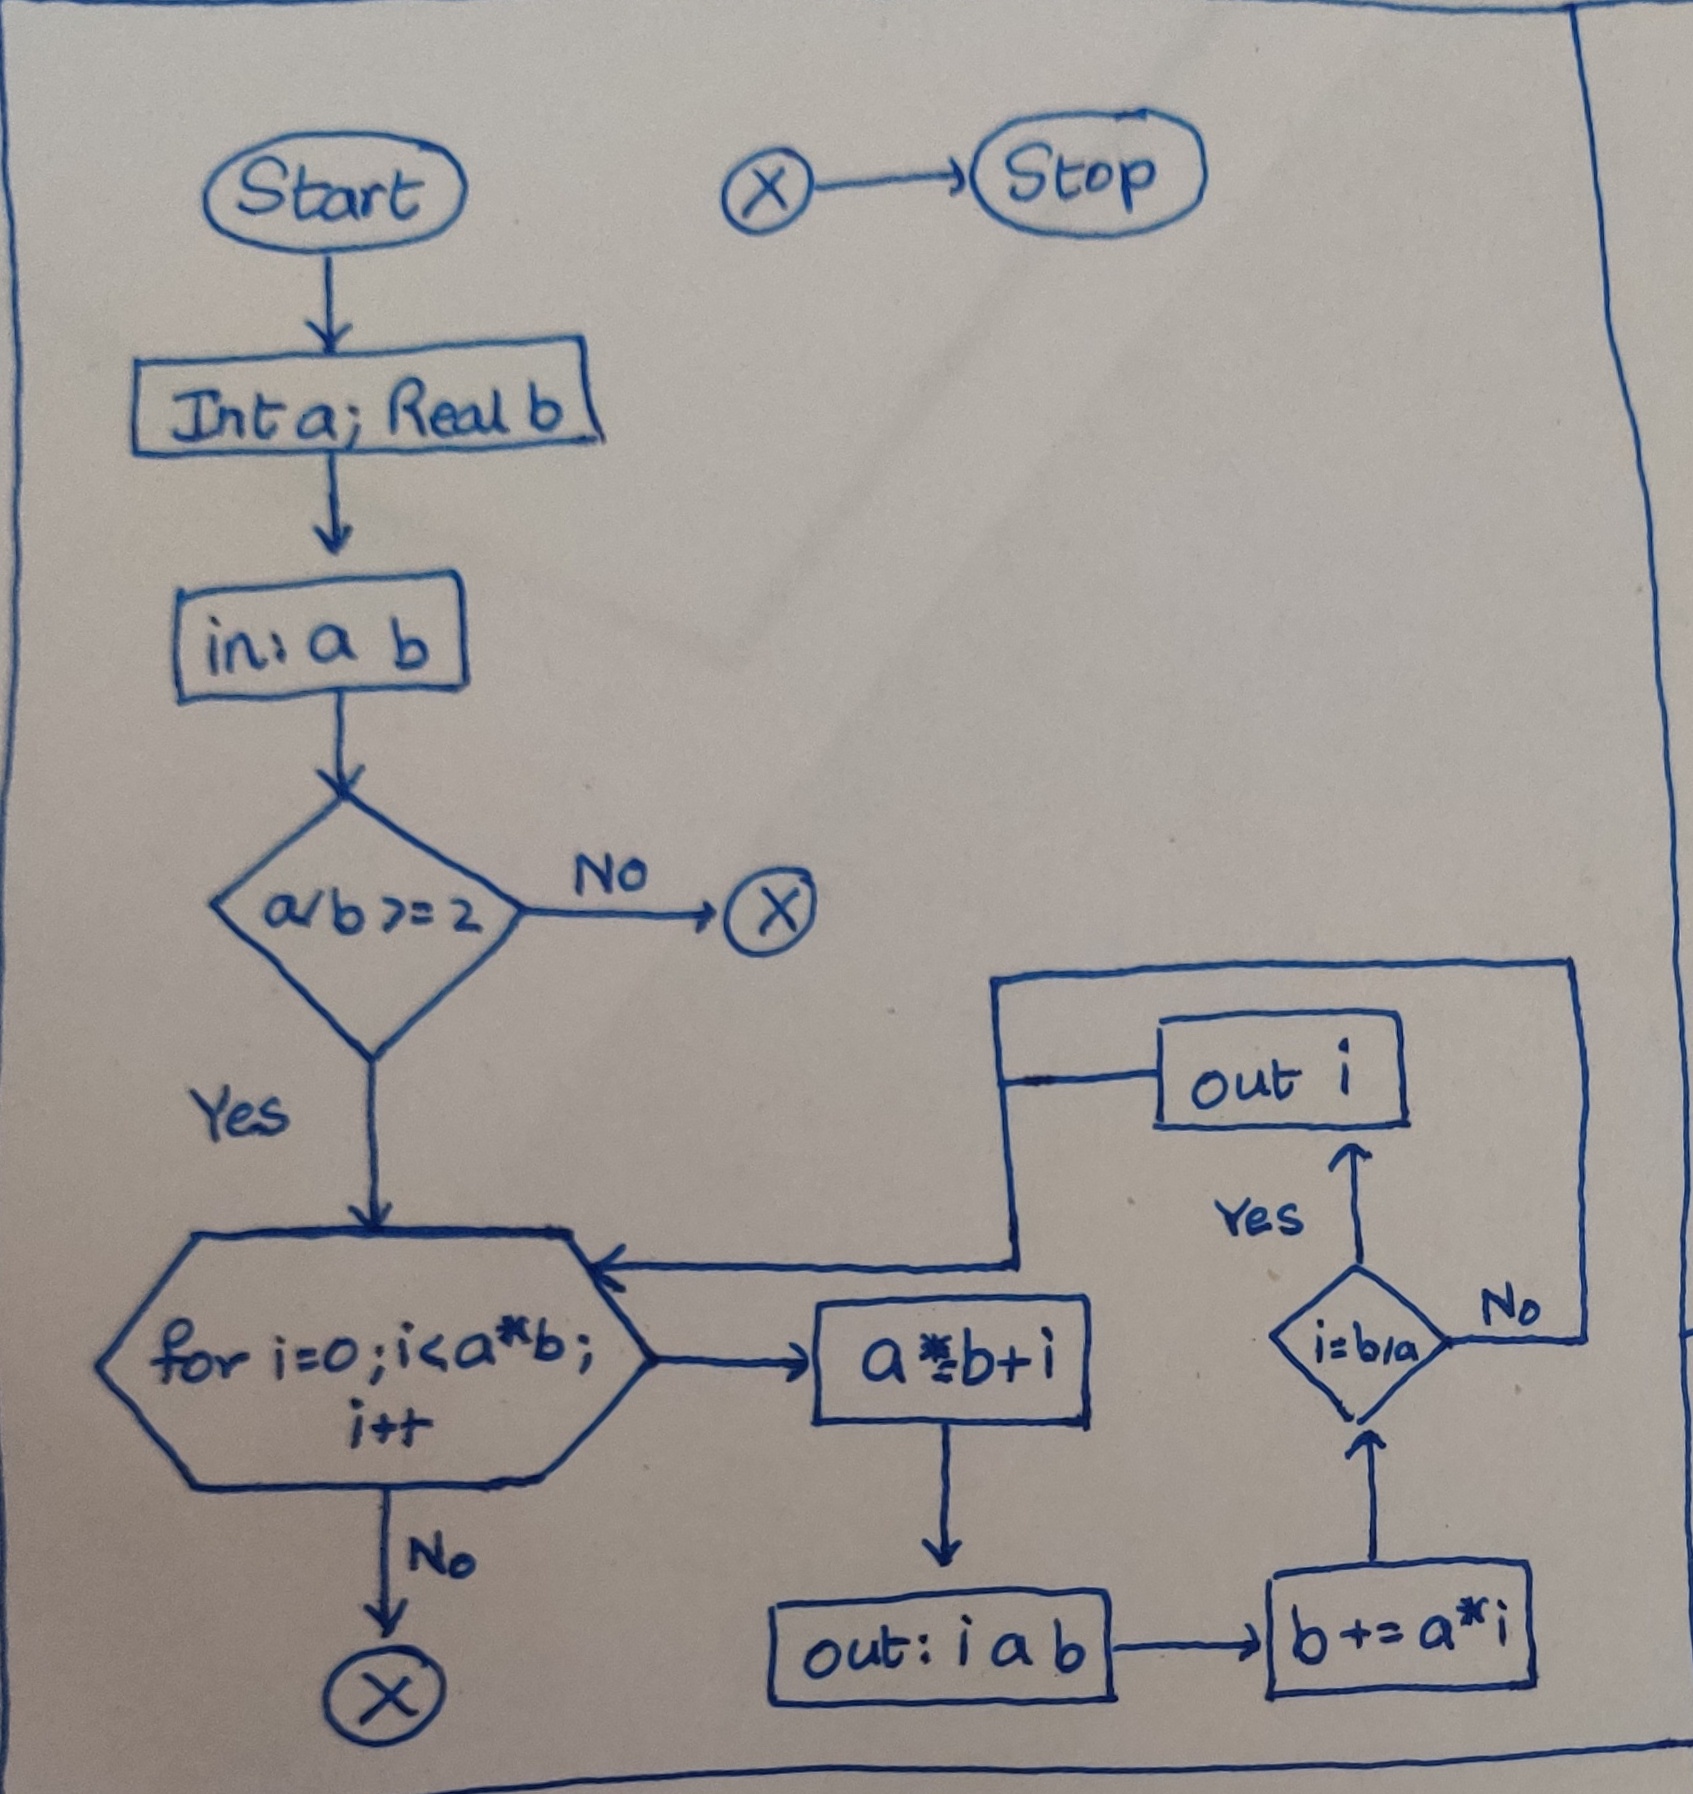 Start
X
Stop
Int a; Real b
in: a b
a/b >= 2
No
X
Yes
for i=0; i<a*b;
i++
No
X
a*=b+i
out: i a b
b += a*i
i=b/a
No
Yes
out i